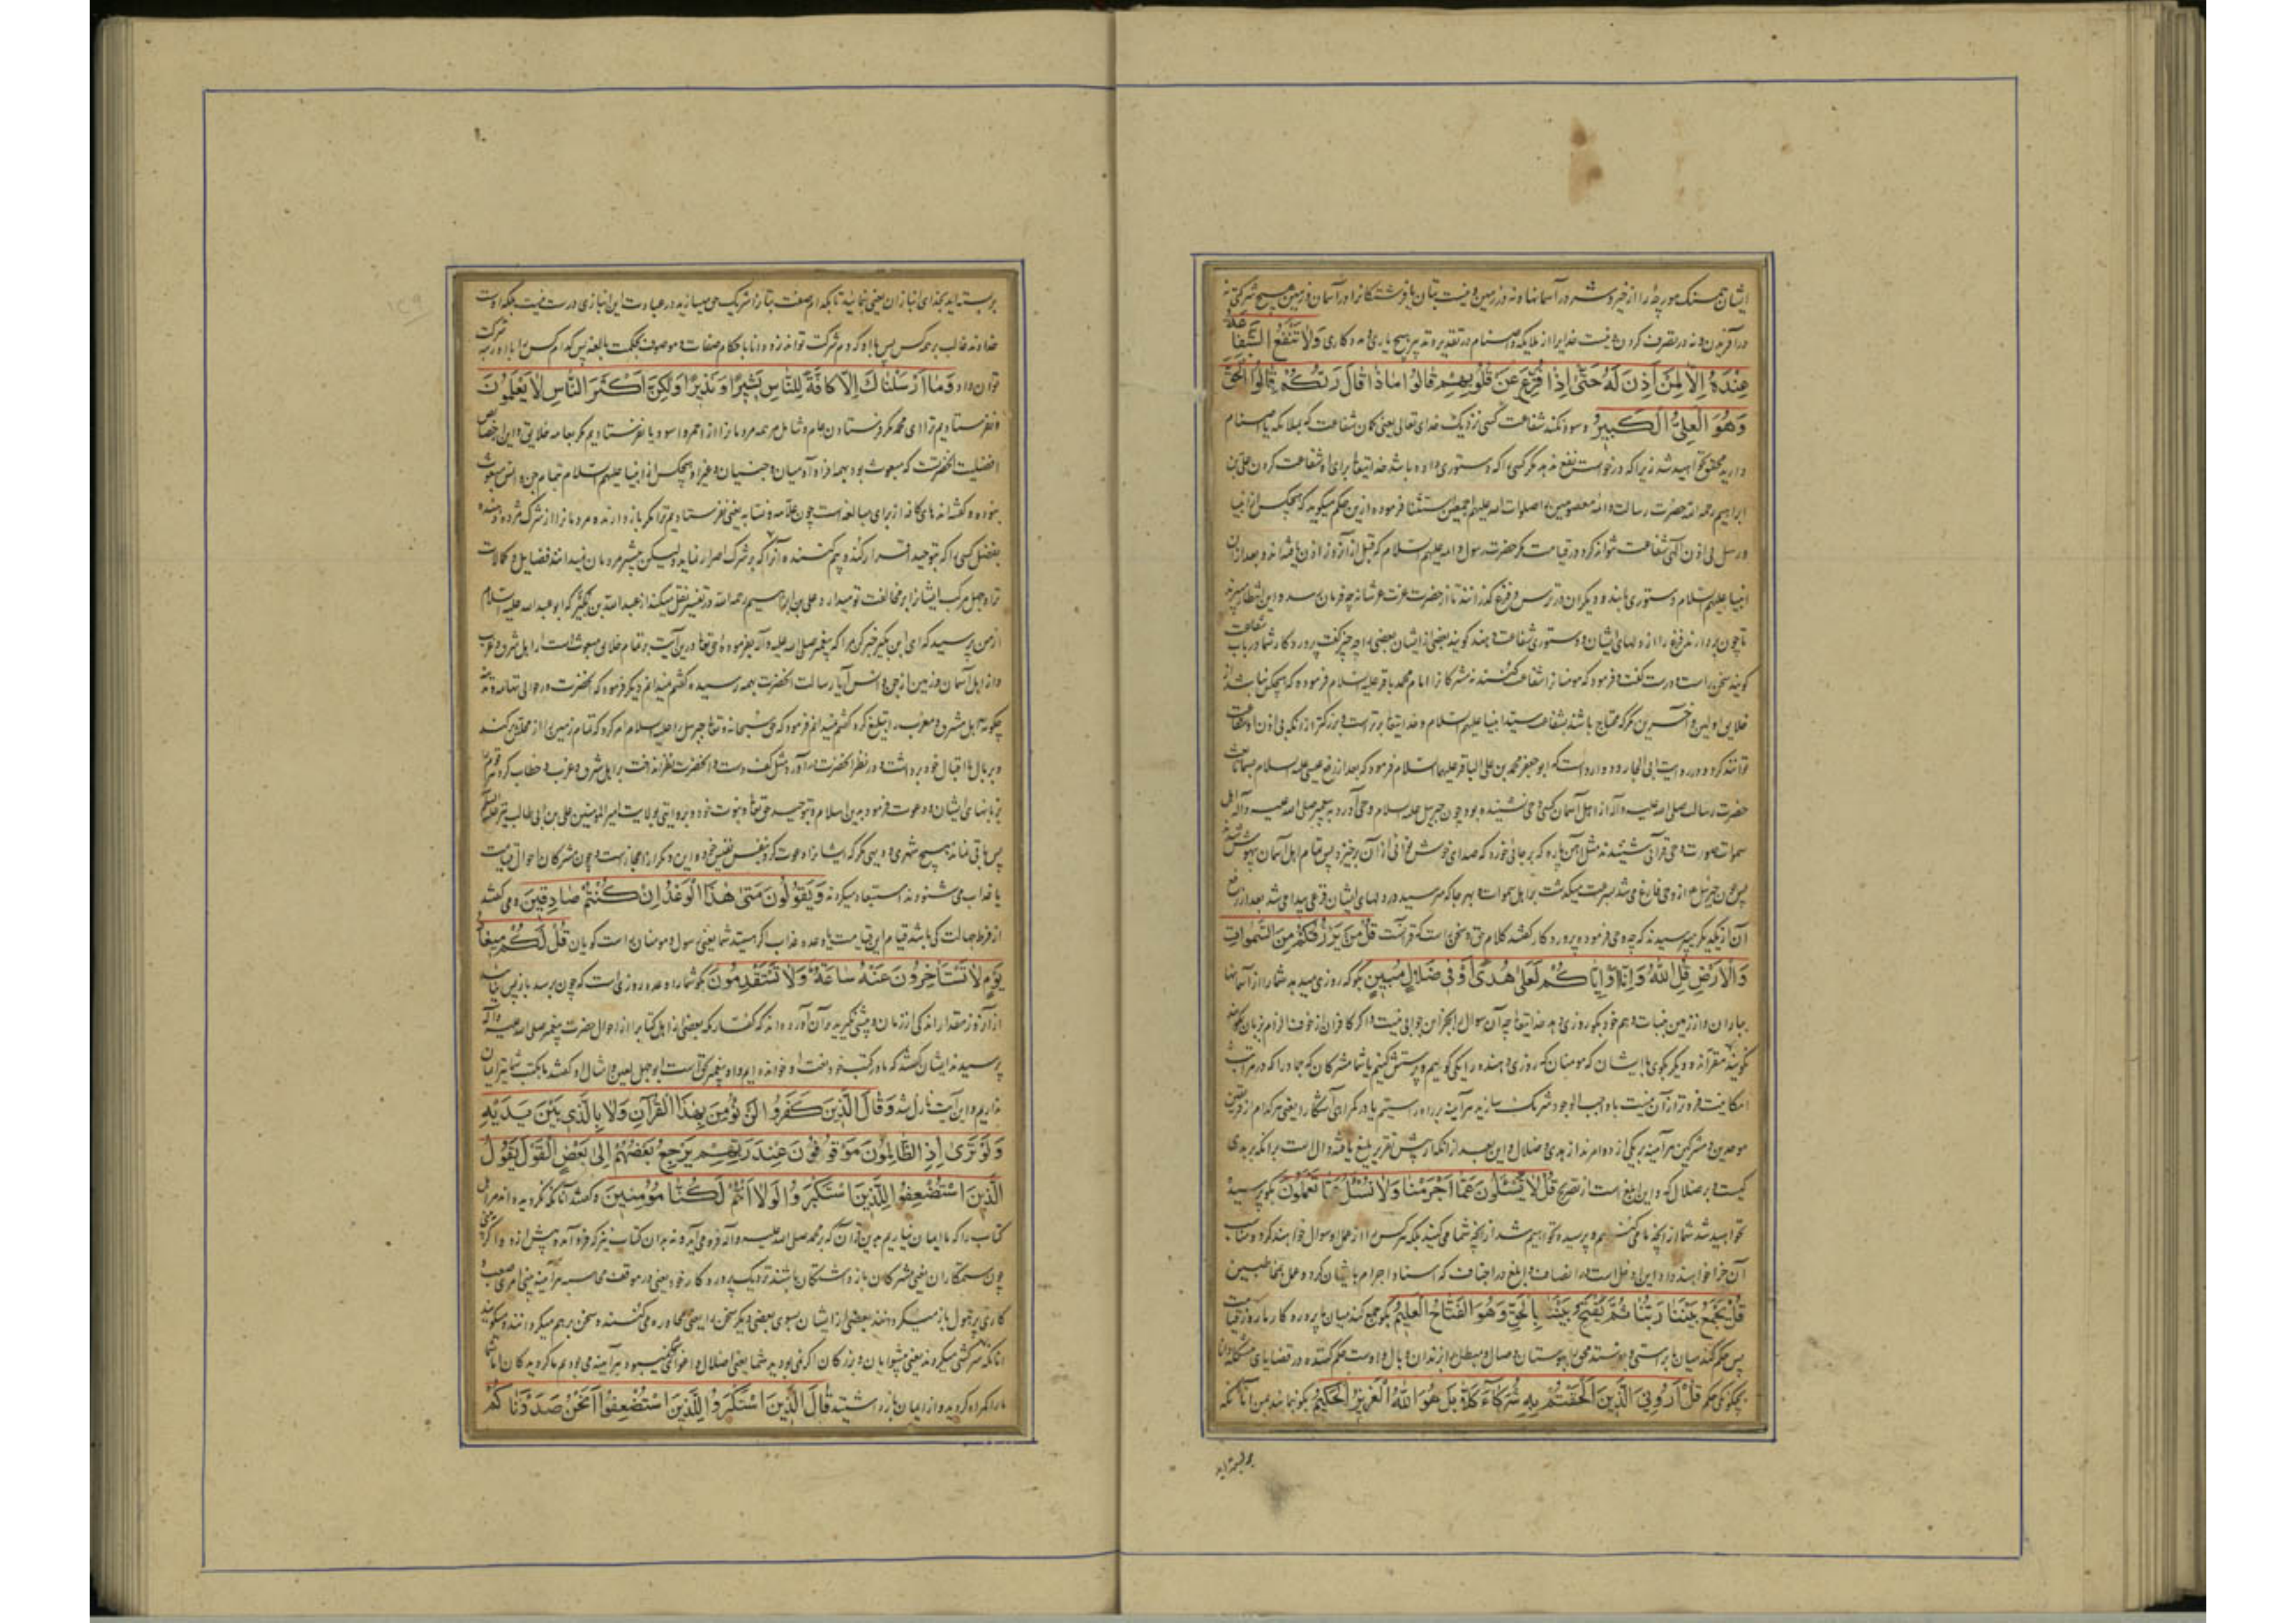 ایشان همسنگ مورچه را از خیر و شر در آسمانها و نه در زمین و نیست بتان یا فرشتگانرا در آسمان و زمین هیچ شرکتی نه
در آفریدن و نه در تصرف کردن و نیست خدایرا از ملایکه و اصنام در تقدیر و تدبیر هیچ یاری و مددکاری وَلَا تَنْفَعُ الشَّفَاعَةُ
عِنْدَهُ إِلَّا لِمَنْ أَذِنَ لَهُ حَتَّىٰ إِذَا فُزِّعَ عَنْ قُلُوبِهِمْ قَالُوا مَاذَا قَالَ رَبُّكُمْ قَالُوا الْحَقَّ
وَهُوَ الْعَلِيُّ الْكَبِيرُ و سود نکند شفاعت کسی نزدیک خدای تعالی یعنی کمان شفاعت که بملائکه یا اصنام
دارید محقق نخواهید شد زیرا که درخواست نفع ندهد مگر کسی را که دستوری داده باشد خدایتعالی برای او شفاعت کردن علی بن
ابراهیم رحمه الله حضرت رسالت و ائمه معصومین را صلوات الله علیهم اجمعین استثنا فرموده ازین حکم میگوید که هیچکس از انبیا
و رسل بی اذن الهی شفاعت نتواند کرد در قیامت مگر حضرت رسول و ائمه علیهم السلام که قبل از آنروز اذن یافته اند و بعد از ان
انبیا علیهم السلام دستوری یابند و دیگران در ترس و فزع گذرانند تا از حضرت عزت عرشانه چه فرمان رسد و این انتظار میبرند
تا چون بردارند فزع را از دلهای ایشان و دستوری شفاعت دهند گویند بعضی از ایشان بعضی را چه چیز گفت پروردگار شما در باب شفاعت
گویند سخن راست و درست گفت و فرمود که مومنانرا شفاعت کنند نه مشرکانرا امام محمد باقر علیه السلام فرموده که هیچکس نباشد از
خلایق اولین و آخرین مگر که محتاج باشد بشفاعت سید انبیا علیهم السلام و خدایتعالی برترست و بزرگتر از آنکه بی اذن او شفاعت
توانند کرد و در روایت ابی الجارود وارد است که ابو جعفر محمد بن علی الباقر علیهما السلام فرمود که بعد از رفع عیسی علیه السلام بسما تا بعثت
حضرت رسالت صلی الله علیه و آله از اهل آسمان کسی وحی نشنیده بود چون جبریل علیه السلام وحی آورد به پیغمبر صلی الله علیه و آله اهل
سموات صورت وحی قرآنی شنیدند مثل آهن پاره که بر جائی خورد که صدای خوش از آن برخیزد پس تمام اهل آسمان بیهوش شدند
پس چون جبرئیل از وحی فارغ می شد بسرعت میگذشت بر اهل سموات و بهر جا که میرسید در دلهای ایشان فزعی پیدا می شد بعد از رفع
آن از یکدیگر میپرسیدند که چه وحی فرموده پروردگار گفتند کلام حق و سخن راست که قرآنست قُلْ مَنْ يَرْزُقُكُمْ مِنَ السَّمَوَاتِ
وَالْأَرْضِ قُلِ اللَّهُ وَإِنَّا أَوْ إِيَّاكُمْ لَعَلَىٰ هُدًى أَوْ فِي ضَلَالٍ مُبِينٍ بگو که روزی میدهد شما را از آسمانها
بباران و از زمین بنبات و هم خود بگو روزی دهد خدایتعالی چه آن سوال را بجز این جوابی نیست و اگر کافران از خوف الزام بزبان
نگویند مقرانند و دیگر بگوی با ایشان که مومنان که روزی دهنده را یکی گوییم و پرستش کنیم یا شما مشرکان که جمادرا که در مراتب
امکانیت فروتر از آن نیست با واجب الوجود شریک سازید هر آینه بر راه راستیم یا در گمراهی آشکارا یعنی هر کدام از فریقین
موحدین و مشرکین هر آینه بر یکی از دو امرند از هدی و ضلال و این بعد از آنکه از پیش تقریر بلیغ یافته دال است بر آنکه بر هدی
کیست و بر ضلال که و این ابلغ است از تصریح قُلْ لَا تُسْئَلُونَ عَمَّا أَجْرَمْنَا وَلَا نُسْئَلُ عَمَّا تَعْمَلُونَ بگو پرسیده
نخواهید شد شما از آنچه ما می کنیم و پرسیده نخواهیم شد از آنچه شما می کنید بلکه هر کس را از عمل او سوال خواهند کرد و مناسب
آن جزا خواهند داد این ادخل است در انصاف و ابلغ در اجتناب که اسناد اجرام با ایشان کرده و عمل بمخاطبین
قُلْ يَجْمَعُ بَيْنَنَا رَبُّنَا ثُمَّ يَفْتَحُ بَيْنَنَا بِالْحَقِّ وَهُوَ الْفَتَّاحُ الْعَلِيمُ بگو جمع کند میان ما پروردگار ما روز قیامت
پس حکم کند میان ما براستی و او ست حکم کننده در قضایای مشکله دانا
بچگونگی حکم قُلْ أَرُونِيَ الَّذِينَ أَلْحَقْتُمْ بِهِ شُرَكَاءَ كَلَّا بَلْ هُوَ اللَّهُ الْعَزِيزُ الْحَكِيمُ بگو بنمائید بمن آنانکه
بر بسته اید بخدای انبازان یعنی بنمائید تا بکدام صفت بتانرا شریک حق میسازید در عبادت این انبازی درست نیست بلکه اوست
خداوند غالب بر همه کس پس با او که دم شرکت تواند زد و دانا باحکام صفات و موصوف بحکمت بالغه پس کدام کس را با او رتبه شرکت
توان داد وَمَا أَرْسَلْنَاكَ إِلَّا كَافَّةً لِلنَّاسِ بَشِيرًا وَنَذِيرًا وَلَكِنَّ أَكْثَرَ النَّاسِ لَا يَعْلَمُونَ
و نفرستادیم ترا ای محمد مگر فرستادن عام و شامل مر همه مردمانرا از احمر و اسود یا نفرستادیم مگر بعامه خلایق و این از خصایص
افضلیت آنحضرتست که مبعوث بود بهمه افراد آدمیان و جنیان و غیر او هیچکس از انبیا علیهم السلام بتمام جن و انس مبعوث
نبوده و گفته اند های کافه از برای مبالغه است چون علامه و نسابه یعنی نفرستادیم ترا مگر بازدارنده مردمانرا از شرک مژده دهنده
بفضل کسی را که بتوحید اقرار کند و بیم کننده آنرا که بر شرک اصرار نماید ولیکن بیشتر مردمان نمیدانند فضایل و کمالات
ترا و جهل مرکب ایشانرا بر مخالفت تو میدارد و علی بن ابراهیم رحمه الله در تفسیر نقل میکند از عبد الله بن بکیر که ابو عبد الله علیه السلام
از من پرسید که ای ابن بکیر خبر کن مرا که پیغمبر صلی الله علیه و آله بفرموده حق تعالی درین آیت بر تمام خلایق مبعوث است از اهل شرق و غرب
و از اهل آسمان و زمین از جن و انس آیا رسالت آنحضرت بهمه رسیده گفتم نمیدانم دیگر فرمود که آنحضرت در حوالی تهامه و مدینه
چگونه اهل مشرق و مغرب را تبلیغ کرد گفتم نمیدانم فرمود که حق سبحانه و تعالی جبرئیل را علیه السلام امر کرد که تمام زمین را از محلش کند
و بر بال اقبال خود برداشت و در نظر آنحضرت در آورد مثل کف دست و آنحضرت نظر انداخت بر اهل شرق و غرب و خطاب کرد هر قوم را
بزبانهای ایشان و دعوت فرمود بدین اسلام و بتوحید حق تعالی و نبوت خود و بروایتی بولایت امیر المومنین علی بن ابی طالب علیه السلام
پس باقی نماند هیچ شهری و دیهی مگر که ایشانرا دعوت کرد بنفس نفیس خود و این دیگر از اعجاز است و چون مشرکان احوال قیامت
یا عذاب می شنودند استبعاد میکردند وَيَقُولُونَ مَتَىٰ هَذَا الْوَعْدُ إِنْ كُنْتُمْ صَادِقِينَ و می گفتند
از فرط جهالت کی باشد قیام این قیامت یا وعده عذاب اگر هستید شما یعنی رسول و مومنان راست گویان قُلْ لَكُمْ مِيعَادُ
يَوْمٍ لَا تَسْتَأْخِرُونَ عَنْهُ سَاعَةً وَلَا تَسْتَقْدِمُونَ بگو شما را وعده روزی است که چون برسد باز پس نیاستید
از آنروز مقدار اندکی از زمان و پیشی نگیرید و آن آورده اند که کفار مکه بعضی از اهل کتاب را از احوال حضرت پیغمبر صلی الله علیه و آله
پرسیدند ایشان گفتند که ما در کتب خود نعت او خوانده ایم و او پیغمبر حق است ابو جهل لعین و امثال او گفتند ما بکتب شما نیز ایمان
نداریم و این آیت نازل شد وَقَالَ الَّذِينَ كَفَرُوا لَنْ نُؤْمِنَ بِهَذَا الْقُرْآنِ وَلَا بِالَّذِي بَيْنَ يَدَيْهِ
وَلَوْ تَرَىٰ إِذِ الظَّالِمُونَ مَوْقُوفُونَ عِنْدَ رَبِّهِمْ يَرْجِعُ بَعْضُهُمْ إِلَىٰ بَعْضٍ الْقَوْلَ يَقُولُ
الَّذِينَ اسْتُضْعِفُوا لِلَّذِينَ اسْتَكْبَرُوا لَوْلَا أَنْتُمْ لَكُنَّا مُؤْمِنِينَ و گفتند آنانکه نگرویده اند مر اهل
کتاب را که ما ایمان نیاریم بدین قرآن که بر محمد صلی الله علیه و آله فرو می آید و نه بدان کتاب نیز که فرود آمده پیش از و و اگر بینی
چون ستمکاران یعنی مشرکان بازداشتگان باشند نزدیک پروردگار خود یعنی در موقف محاسبه هر آینه بینی امری صعب و
کاری پر هول باز میگردانند بعضی از ایشان بسوی بعضی دیگر سخن را یعنی محاوره می کنند و سخن بر هم میگردانند و میگویند
آنانکه سرکشی میکردند یعنی پیشوایان و بزرگان اگر نمی بودید شما یعنی اضلال و اغوا هر آینه می بودیم ما گرویدگان اما شما
ما را گمراه کردید و از ایمان باز داشتید قَالَ الَّذِينَ اسْتَكْبَرُوا لِلَّذِينَ اسْتُضْعِفُوا أَنَحْنُ صَدَدْنَاكُمْ
بر بسته اید